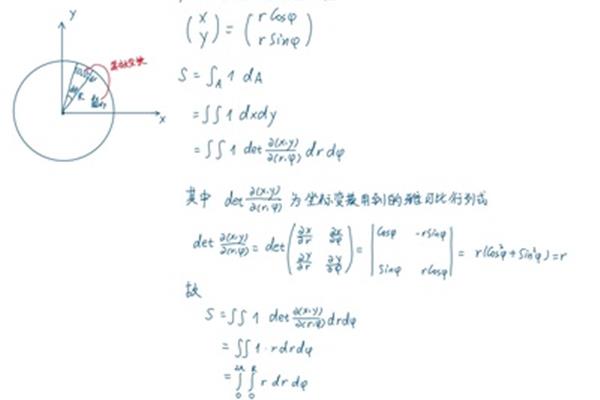 y
x
R
dφ
(x y) = (r cosφ r sinφ)
S = ∫_A 1 dA
= ∫∫ 1 dxdy
= ∫∫ 1 det ∂(x,y)/∂(r,φ) dr dφ
其中 det ∂(x,y)/∂(r,φ) 为坐标变换用到的雅可比行列式
det ∂(x,y)/∂(r,φ) = det (∂x/∂r ∂x/∂φ ∂y/∂r ∂y/∂φ) = |cosφ -r sinφ sinφ r cosφ| = r(cos²φ + sin²φ) = r
故
S = ∫∫ 1 det ∂(x,y)/∂(r,φ) dr dφ
= ∫∫ 1·r dr dφ
= ∫₀^{2π} ∫₀^R r dr dφ